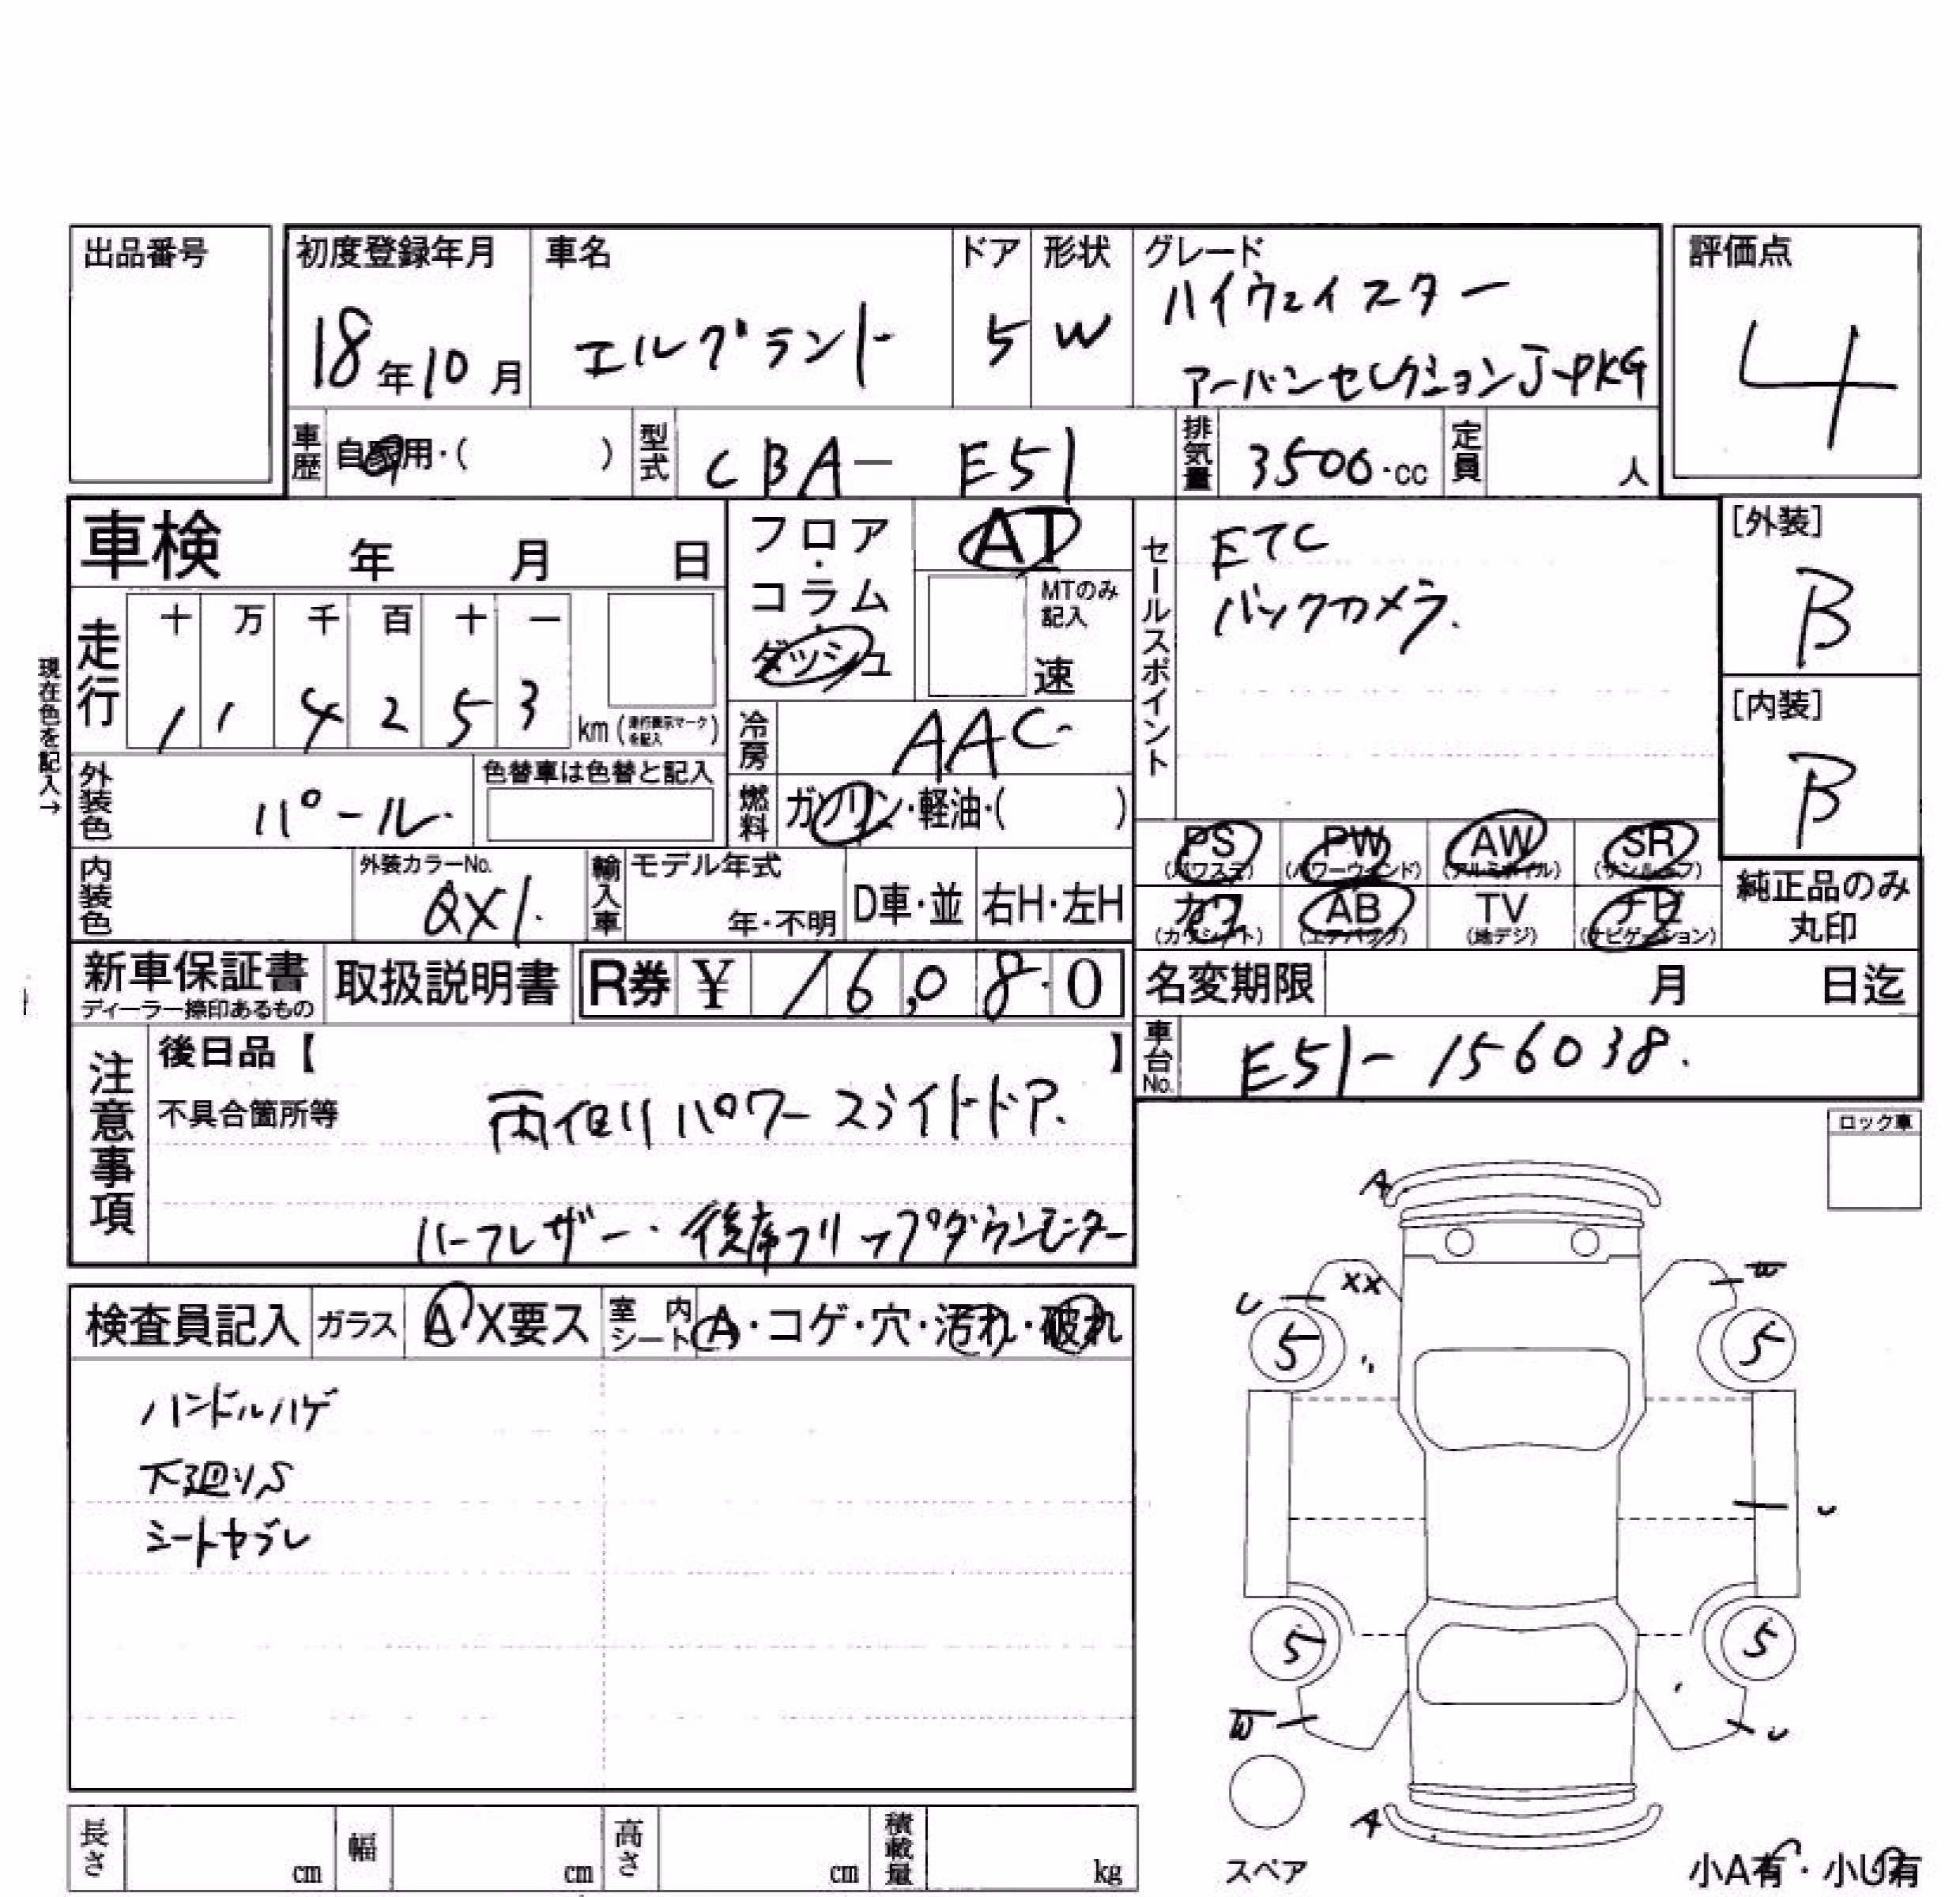 出品番号
初度登録年月 車名 ドア 形状 グレード 評価点
18年10月 エルグランド 5 W ハイウェイスター
アーバンセレクションJ-PKG 4
車歴 自家用・( ) 型式 CBA- E51 排気量 3500・cc 定員 人
車検 年 月 日
フロア・コラム・ダッシュ
AT
MTのみ記入
速
セールスポイント
ETC
バックカメラ.
[外装]
B
[内装]
B
現在色を記入→
走行 十 万 千 百 十 一
1 1 4 2 5 3 km (走行表示マークを記入)
冷房 AAC
外装色 パール. 色替車は色替と記入
燃料 ガソリン・軽油・( )
内装色 外装カラーNo. QX1. 輸入車 モデル年式 年・不明 D車・並 右H・左H
PS (パワステ) PW (パワーウィンド) AW (アルミホイル) SR (サンルーフ)
カワ (カワシート) AB (エアバッグ) TV (地デジ) ナビ (ナビゲーション)
純正品のみ
丸印
新車保証書 ディーラー捺印あるもの 取扱説明書 R券 ¥ 16,080
名変期限 月 日迄
車台No. E51-156038.
注意事項
後日品【 】
不具合箇所等 両側パワースライドドア.
ハーフレザー. 後席フリップダウンモニター
ロック車
検査員記入 ガラス A X要ス 室内シート A・コゲ・穴・汚れ・破れ
ハンドルハゲ
下廻りS
シートヤブレ
A
XX
U
W
5 5
U
5 5
W U
A
スペア
小A有・小U有
長さ cm 幅 cm 高さ cm 積載量 kg